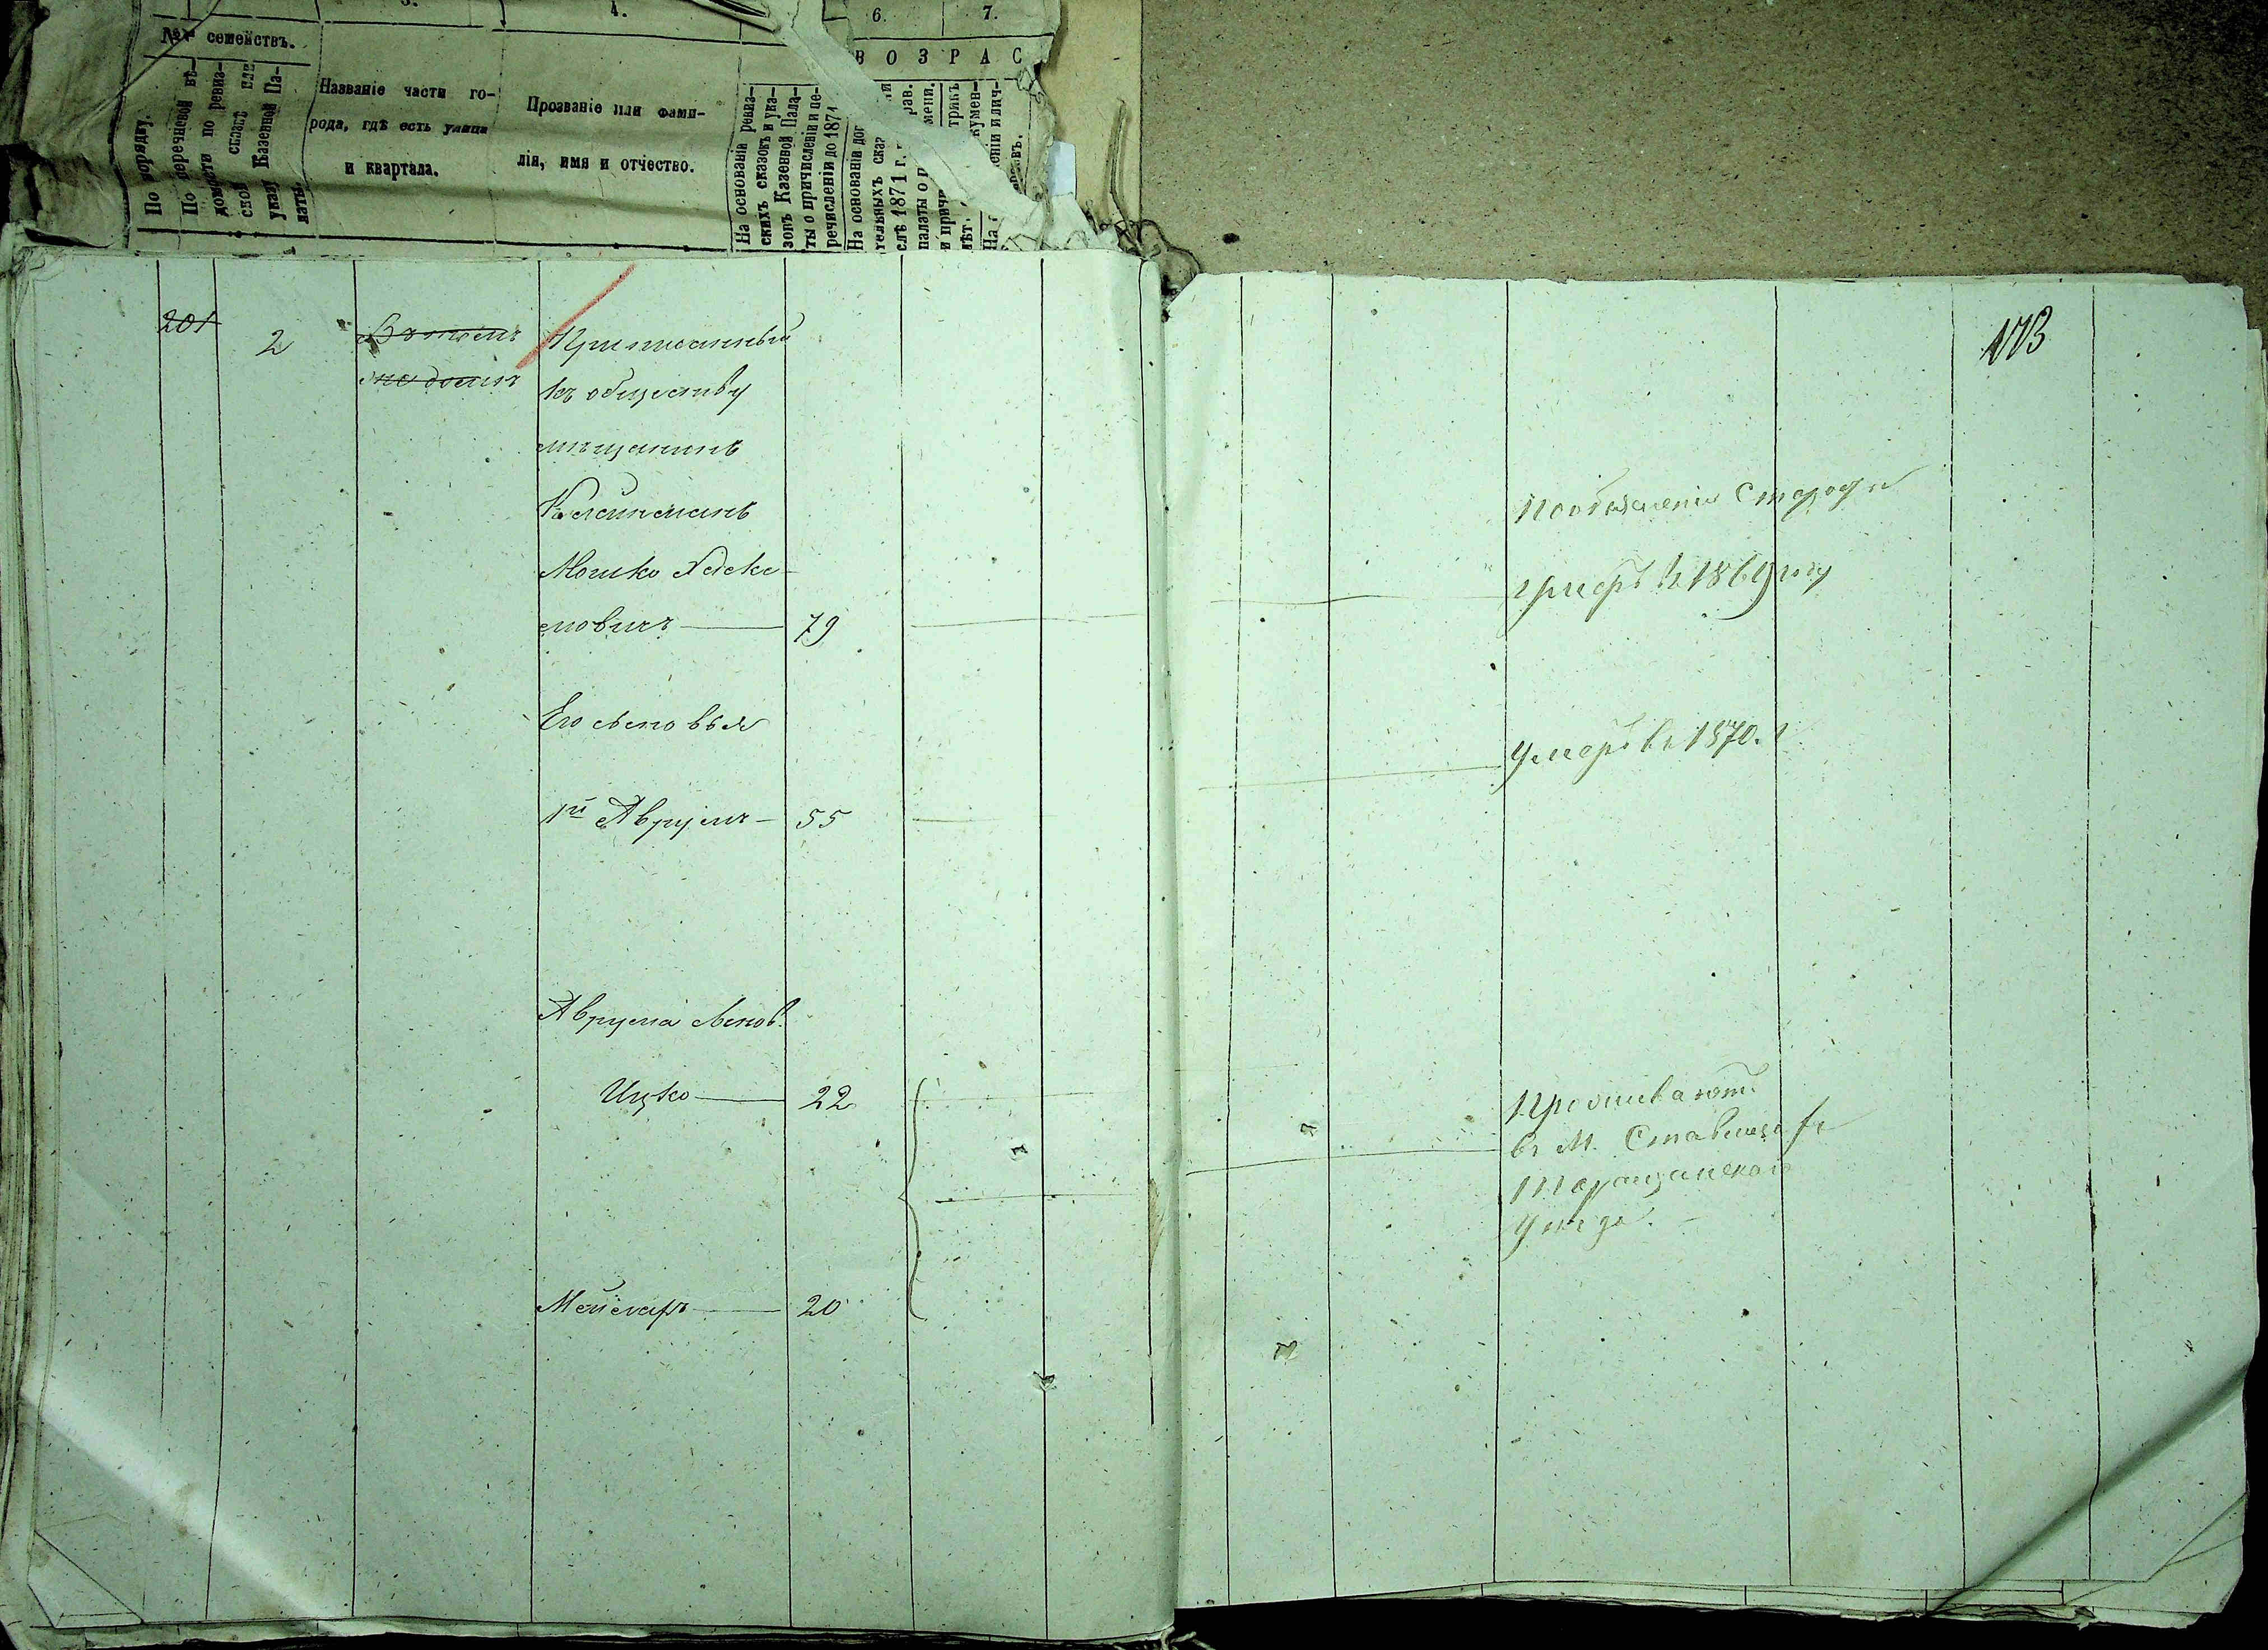 4.
6.
7.
№№ семействъ.
По порядку.
По перечневой вѣ-
домости по ревиз-
ской сказкѣ или
указу Казенной Па-
латы
Названіе части го-
рода, гдѣ есть улица
и квартала.
Прозваніе или фами-
лія, имя и отчество.
ВОЗРАС
На основаніи ревиз-
скихъ сказокъ и ука-
зовъ Казенной Пала-
ты о причисленіи и пе-
речисленіи до 1871
На основаніи доп
тельныхъ сказ
слѣ 1871 г.
палаты о п
и причи
201
2
Приписанный
къ обществу
мѣщанинъ
Клейнманъ
Мошко Хаске-
левичъ — 79
Его сыновья
1й Аврумъ — 55
Аврума сынов.
Ицко — 22
Мейлахъ — 20
173
По объясненію Старосты
умеръ въ 1869 году
Умеръ въ 1870. г
Проживаютъ
въ М. Ставищахъ
Таращанскаго
уѣзда.